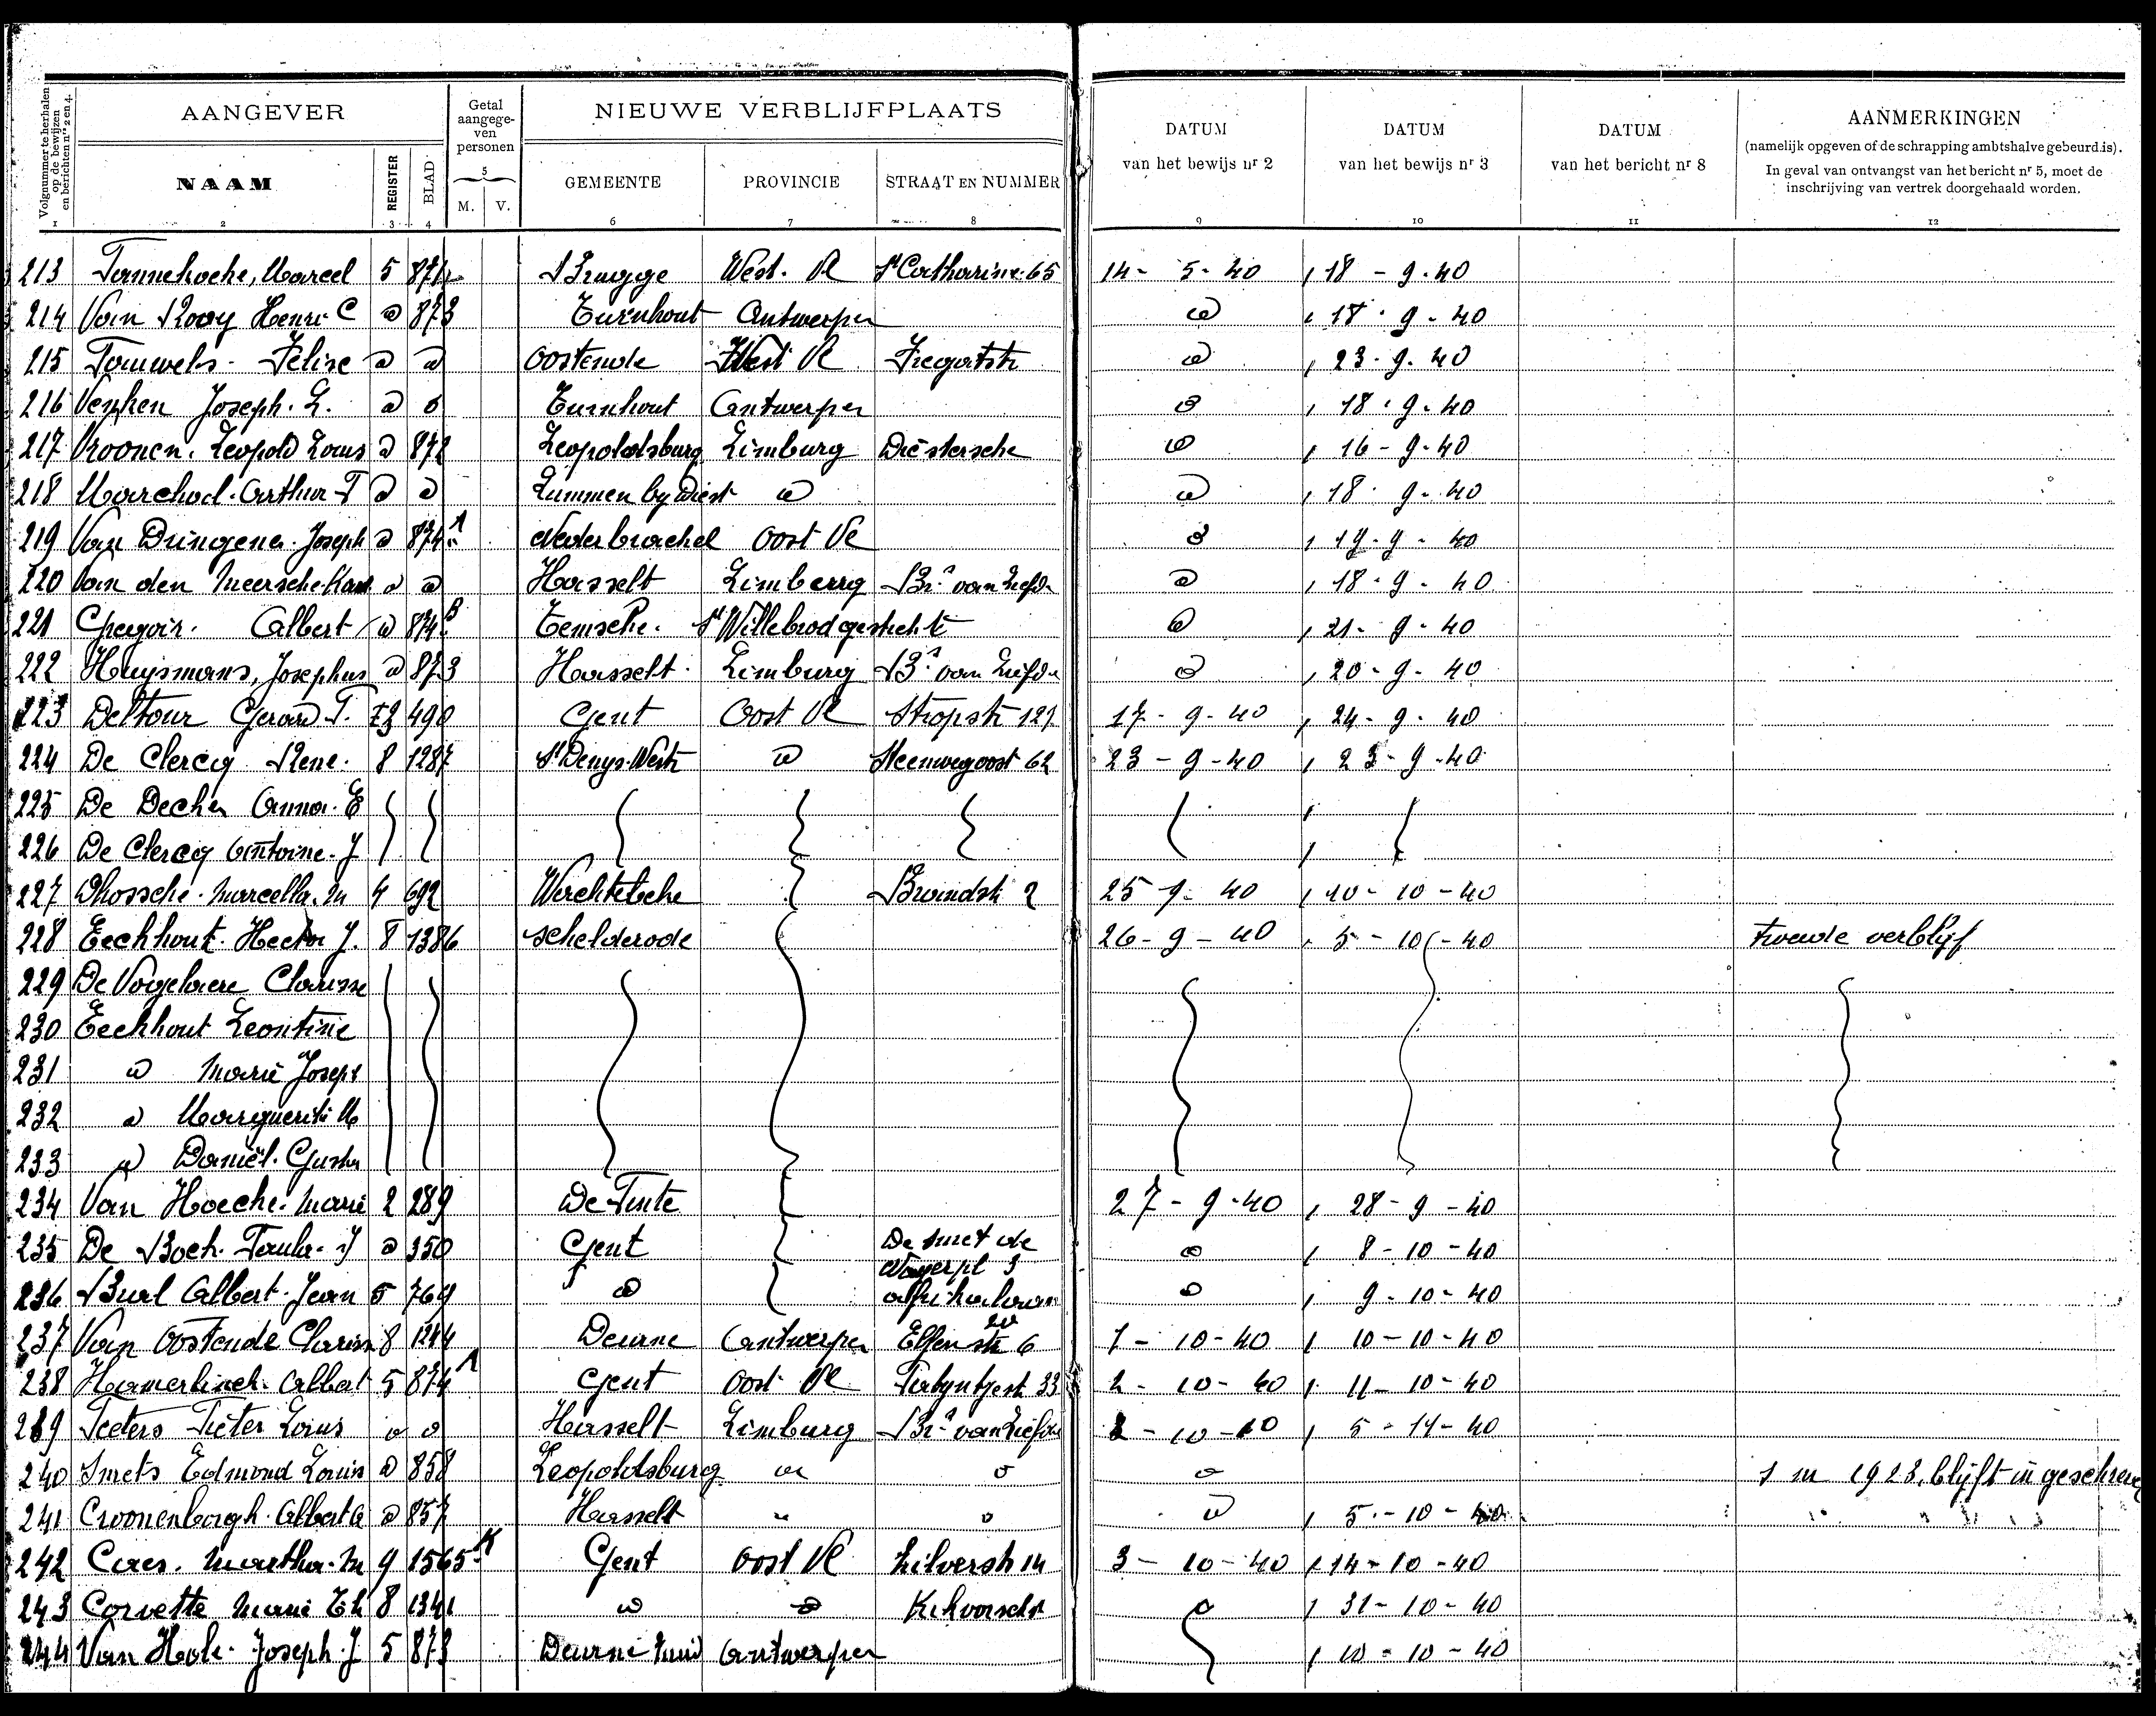 Volgnummer te herhalen op de bewijzen en berichten nrs 2 en 4.
AANGEVER
Getal aangegeven personen
NIEUWE VERBLIJFPLAATS
DATUM van het bewijs nr 2
DATUM van het bewijs nr 3
DATUM van het bericht nr 8
AANMERKINGEN
(namelijk opgeven of de schrapping ambtshalve gebeurd is).
In geval van ontvangst van het bericht nr 5, moet de inschrijving van vertrek doorgehaald worden.
NAAM REGISTER BLAD M. V. GEMEENTE PROVINCIE STRAAT EN NUMMER
1 2 3 4 5 6 7 8 9 10 11 12
213 Marcel 5 Brugge West. Vl St Catharine 65 14 - 5 - 40 18 - 9 - 40
214 Van Rooy Henri C d 873 Turnhout Antwerpen d 18 - 9 - 40
215 Pauwels Felix d d Oostende West Vl Fregatstr d 23 - 9 - 40
216 Joseph. L. d d Turnhout Antwerpen d 18 - 9 - 40
217 Vroonen. Leopold Louis d 872 Leopoldsburg Limburg Diestersche d 16 - 9 - 40
218 Arthur F d d Lummen by Diest d d 18 - 9 - 40
219 Van Dringenen Joseph d 874 A Nederbrachel Oost Vl d 19 - 9 - 40
220 Van den Meersche Karel d d Hasselt Limburg Brs van Liefde d 18 - 9 - 40
221 Gregoir. Albert d 874 B Temsche. St Willebrod gesticht d 21 - 9 - 40
222 Huysmans, Josephus d 873 Hasselt Limburg Brs van Liefde d 20 - 9 - 40
223 Deltour Gerard F. 490 Gent Oost Vl Stropstr 127 17 - 9 - 40 24 - 9 - 40
224 De Clercq Rene. 8 1287 St Denys-Westr d Steenwegoost 62 23 - 9 - 40 23 - 9 - 40
225 De Decker Anna. E
226 De Clercq Antoine. J
227 Dhossche. Marcella. M 4 692 Wachtebeke Brandstr 2 25 - 9 - 40 10 - 10 - 40
228 Eeckhout. Hector J. 8 1386 Schelderode 26 - 9 - 40 5 - 10 - 40 tweede verblijf
229 De Vogelaere Clarisse
230 Eeckhout Leontine
231 d Marie Joseph
232 d Marguerite M
233 d Daniël. Gusta
234 Van Hoecke. Marie 2 289 De Pinte 27 - 9 - 40 28 - 9 - 40
235 De Bock. Paula. J d 350 Gent De Smet de Naeyerpl 3 d 8 - 10 - 40
236 Albert. Jean 5 769 d Afrikalaan d 9 - 10 - 40
237 Van Oostende Clariss 8 1244 Deurne Antwerpen 6 1 - 10 - 40 10 - 10 - 40
238 Hamerlinck. Albert 5 874 A Gent Oost Vl 33 2 - 10 - 40 11 - 10 - 40
239 Peeters Pieter Louis d d Hasselt Limburg Brs van Liefde 2 - 10 - 40 5 - 11 - 40
240 Smets Edmond Louis d 858 Leopoldsburg d d d 1923, blijft in geschreven
241 Croonenborgh. Albert d 857 Hasselt " " d 5 - 10 - 40 " " "
242 Caes. Martha. M 9 1565 K Gent Oost Vl Zilverstr 14 3 - 10 - 40 14 - 10 - 40
243 Corvette Marie Th 8 1341 d d 31 - 10 - 40
244 Van Hole. Joseph. J 5 873 Deurne Zuid Antwerpen 10 - 10 - 40